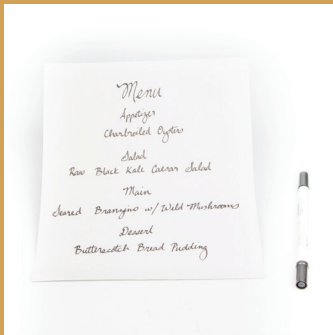 Menu
Appetizer
Charbroiled Oysters
Salad
Raw Black Kale Caesar Salad
Main
Seared Branzino w/ Wild Mushrooms
Dessert
Butterscotch Bread Pudding